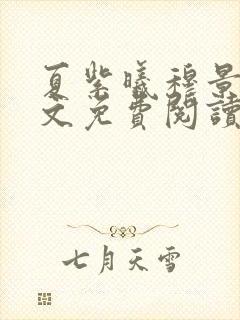 夏紫曦穆景
文免費閱讀
七月天雪